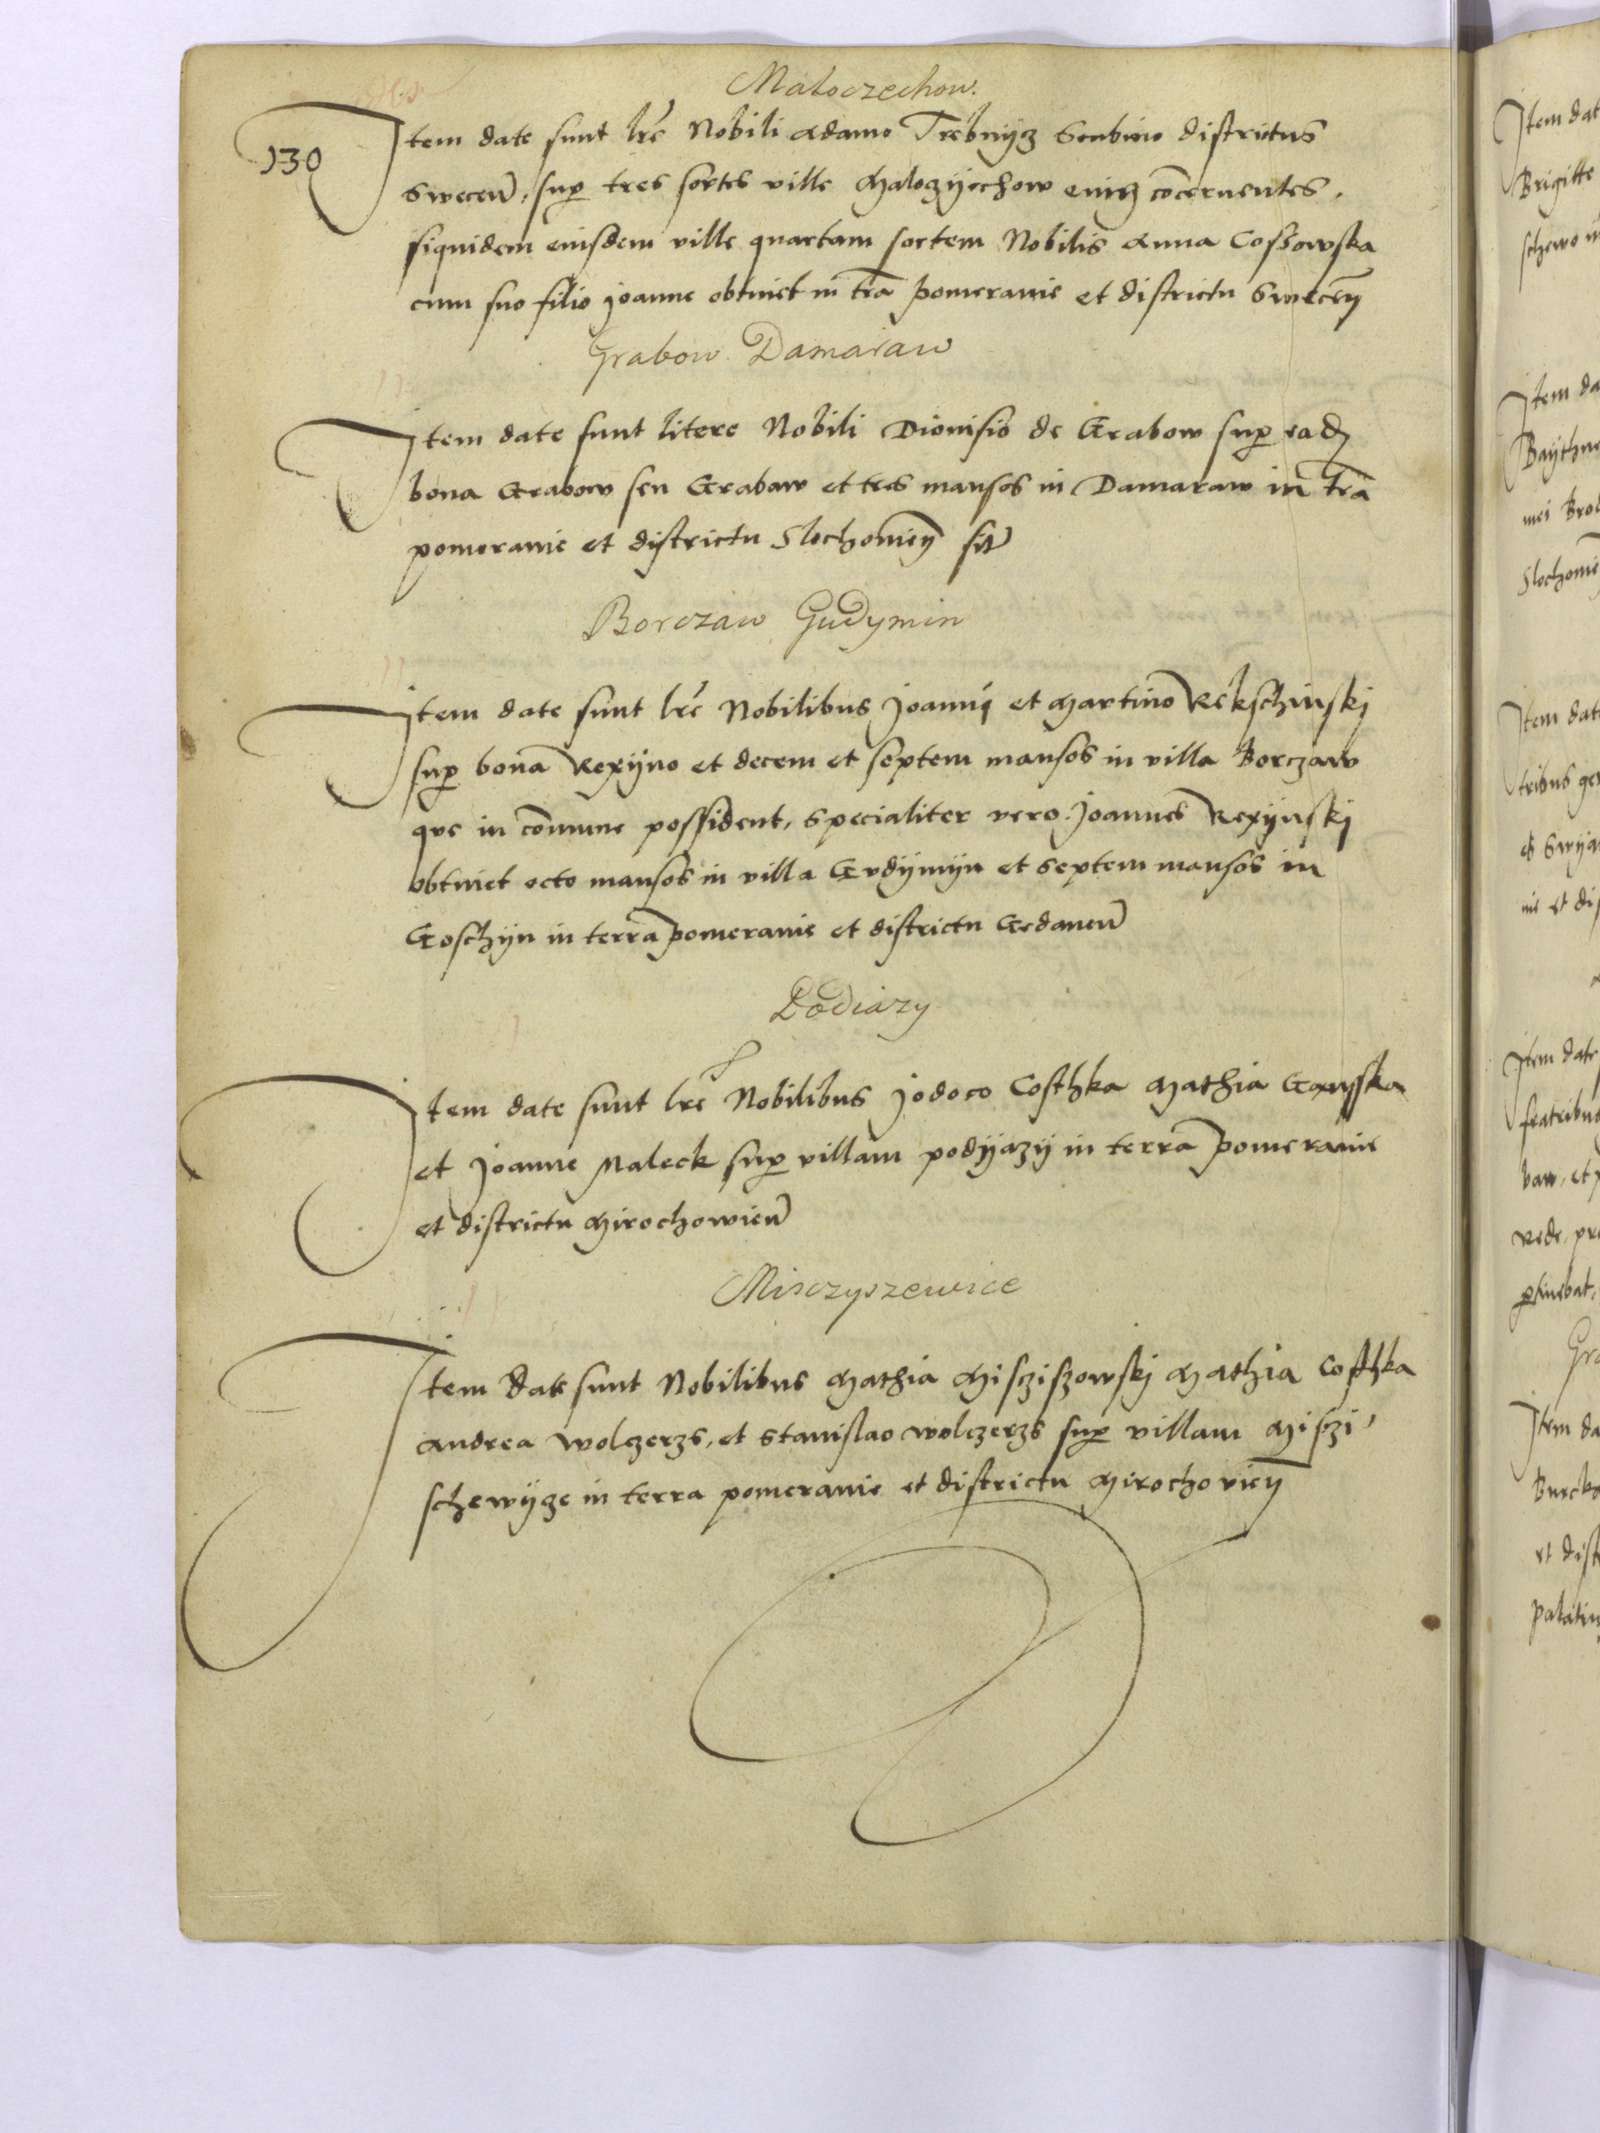 Maloczechow.
130
Item date sunt lre Nobili Adamo Trebnyz Scubino districtus
Swecen, sup tres sortes ville Malozyechow eum concernentes,
siquidem eiusdem ville quartam sortem Nobilis Anna Cossowska
cum suo filio Joanne obtinet in tra pomeranie et districtu Swecen
Grabow Damaraw
Item date sunt litere Nobili Dionisio de Grabow sup ead
bona Grabow seu Grabaw et tres mansos in Damaraw in tra
pomeranie et districtu Slochovien sit
Borczaw Gudymin
Item date sunt lre Nobilibus Joanni et Martino Rekschinski
sup bona Rexyno et decem et septem mansos in villa Borczaw
que in comune possident, specialiter vero Joannes Rexynski
obtinet octo mansos in villa Gvdymyn et septem mansos in
Goschyn in terra pomeranie et districtu Gedanen
Podiazy
Item date sunt lre Nobilibus Jodoco Costhka Mathia
et Joanne Maleck sup villam podyazy in terra pomeranie
et districtu Mirochowien
Misczyszewice
Item date sunt Nobilibus Mathia Misziszowski Mathia Costhka
Andrea Wolczerzs, et Stanislao Wolczerzs sup villam Miszi,
schewyze in terra pomeranie et districtu Mirochovien
Item dat
Brigitte
Item da
Item dat
Item date
fratribus
Item da
et dist
palatin